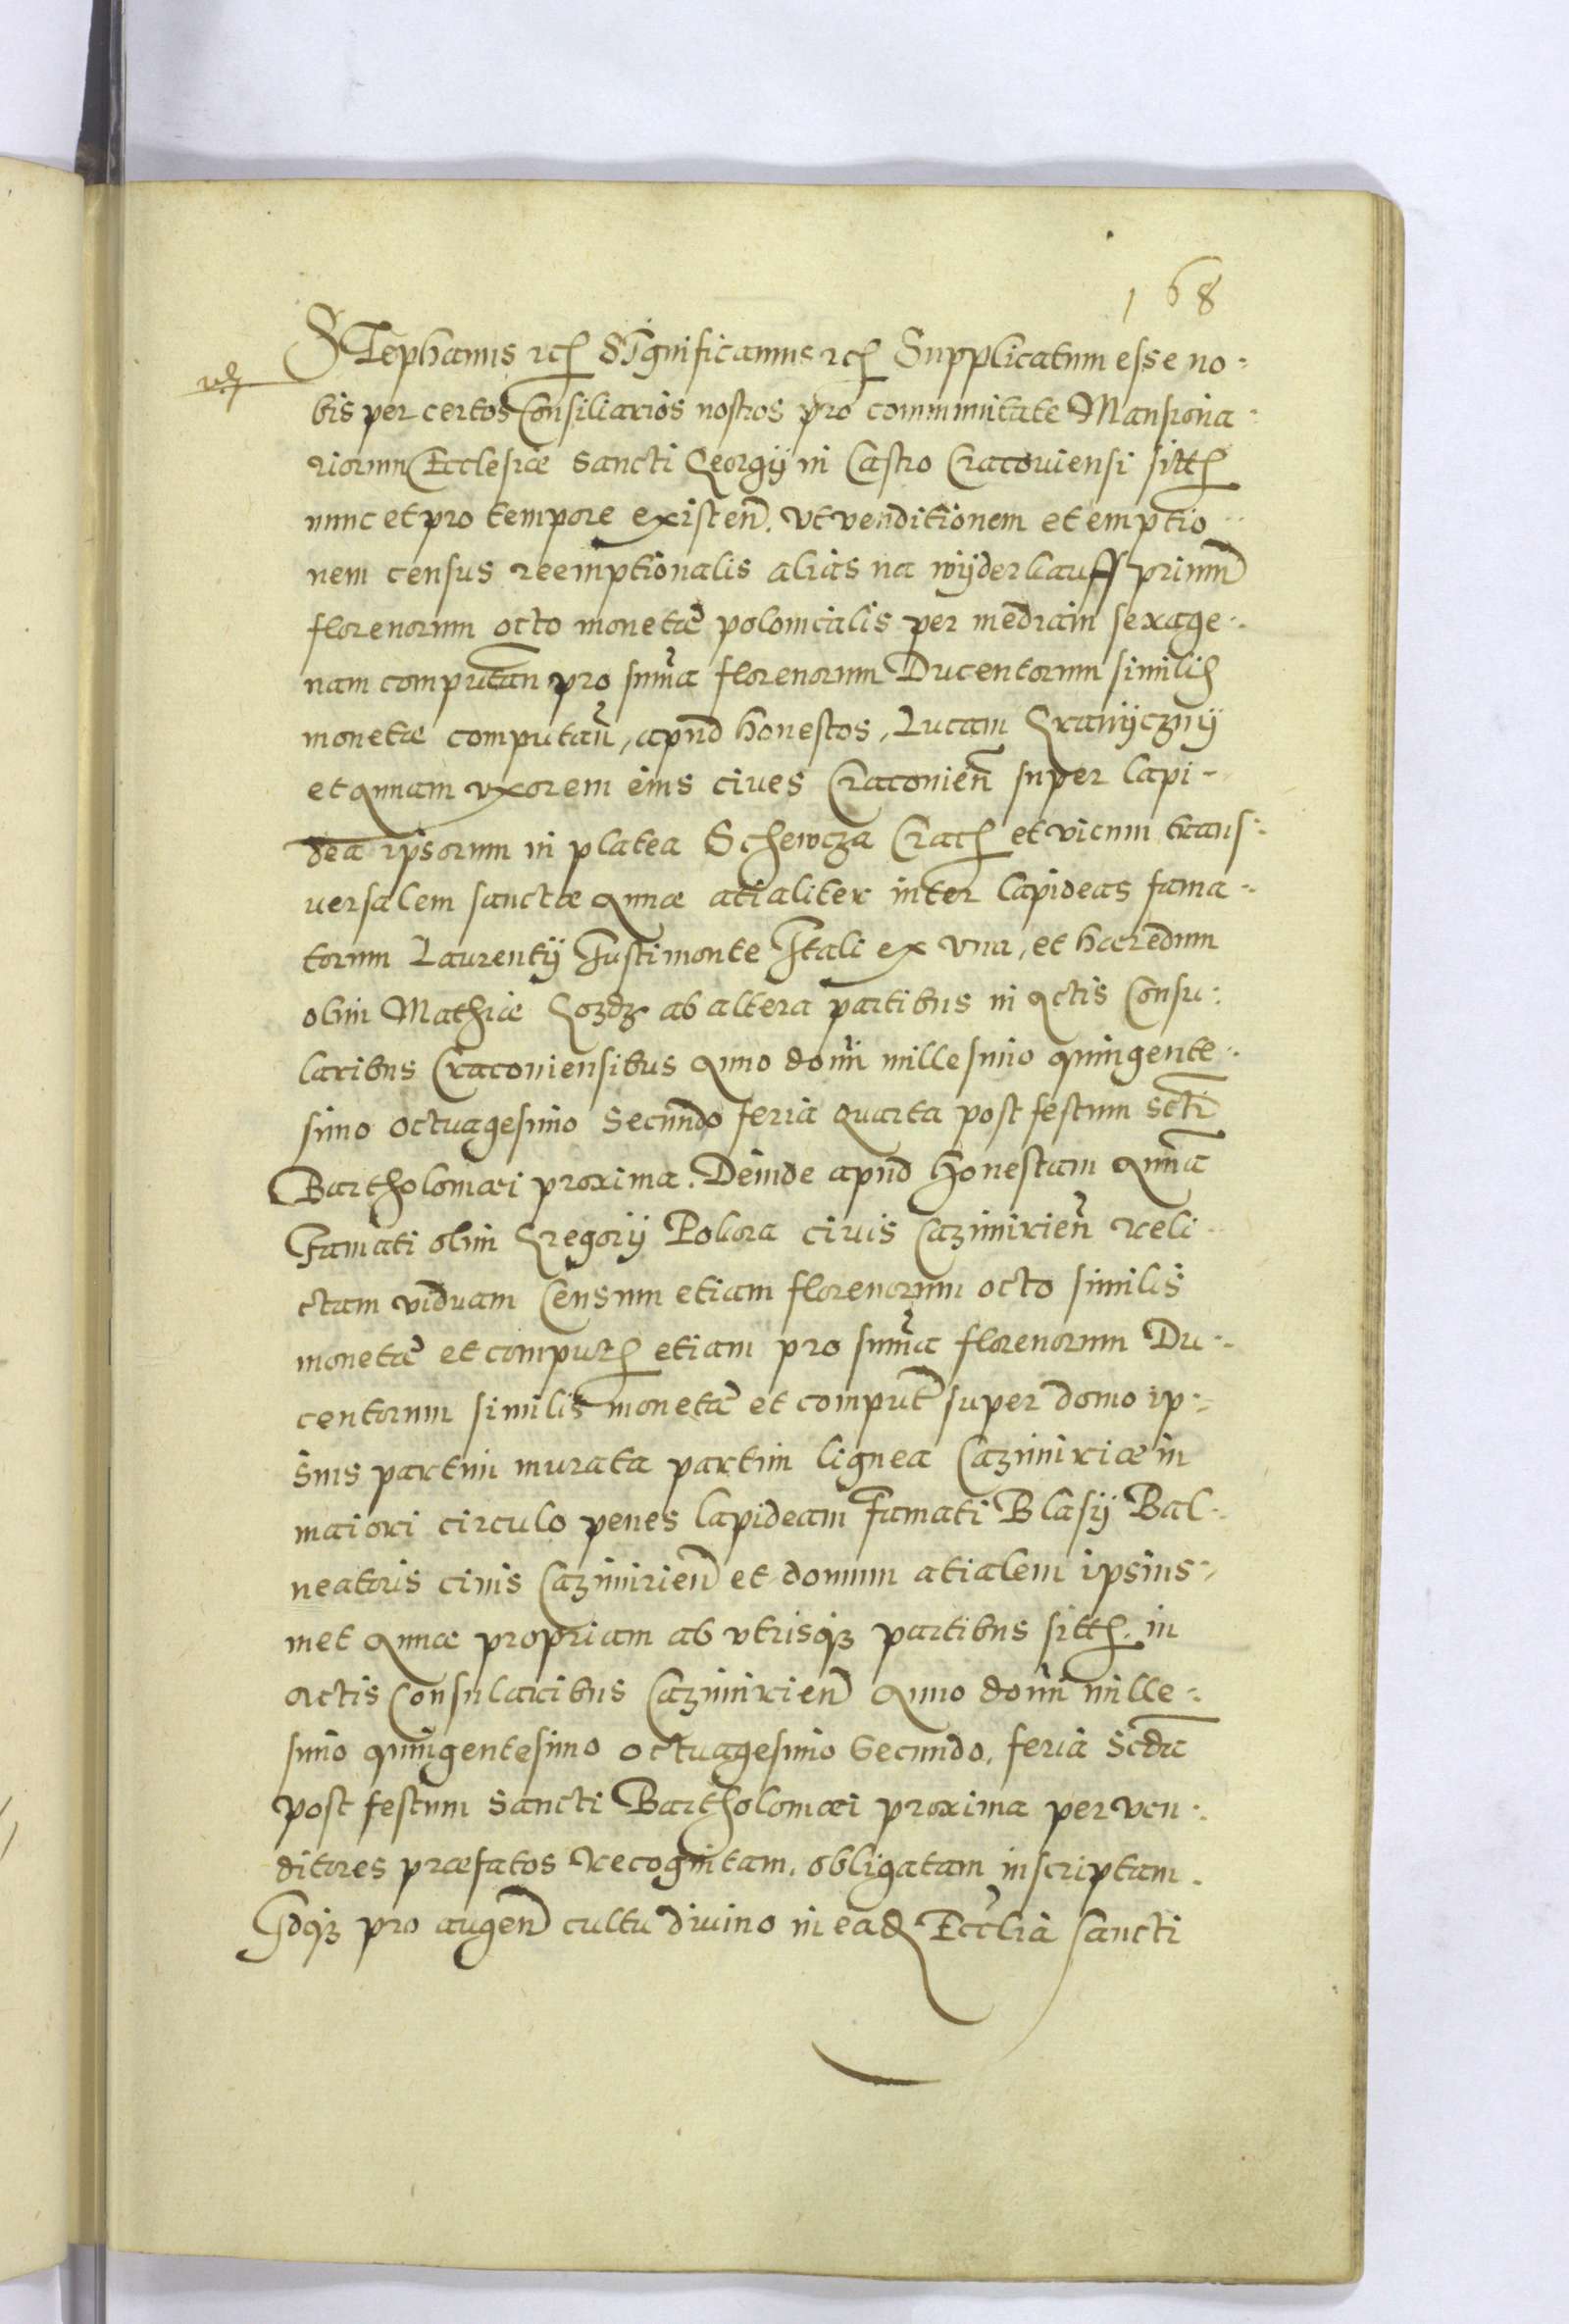 168
STephanus etc Significamus etc Supplicatum esse no-
bis per certos Consiliarios nostros pro communitate Mansiona-
riorum Ecclesiæ Sancti Georgij in Castro Cracoviensi sitæ
nunc et pro tempore existen. vt venditionem et emptio-
nem census reemptionalis alias na wijderkauff primum
florenorum octo monetæ polonicalis per mediam sexage-
nam computan pro summa florenorum Ducentorum similis
monetæ computan, apud honestos, Lucam Graniczny
et Annam vxorem eius ciues Cracouien super lapi-
dea ipsorum in platea Schewcza Crac et vicum trans-
uersalem sanctæ Annæ acialiter inter lapideas fama-
torum Laurentij Justimonte Itali ex vna, et hæredum
olim Mathiæ Gozdz ab altera partibus in Actis Consu-
laribus Cracouiensibus Anno domi millesimo quingente-
simo octuagesimo Secundo feria quarta post festum Scti
Bartholomæi proxima. Deinde apud Honestam Anna
Famati olim Gregorij Polora ciuis Cazimirien reli-
ctam viduam Censum etiam florenorum octo similis
monetæ et comput etiam pro summa florenorum Du-
centorum similis monetæ et comput super domo ip-
sius partim murata partim lignea Cazimiriæ in
maiori circulo penes lapideam Famati Blasij Bal-
neatoris ciuis Cazimirien et domum acialem ipsius-
met Annæ propriam ab vtrisq partibus sitt. in
Actis Consularibus Cazimirien Anno domi mille-
simo quingentesimo octuagesimo Secundo, feria Scda
post festum Sancti Bartholomæi proxima per ven-
ditores præfatos recognitam, obligatam inscriptam.
Idq pro augen cultu diuino in ead Ecclia Sancti